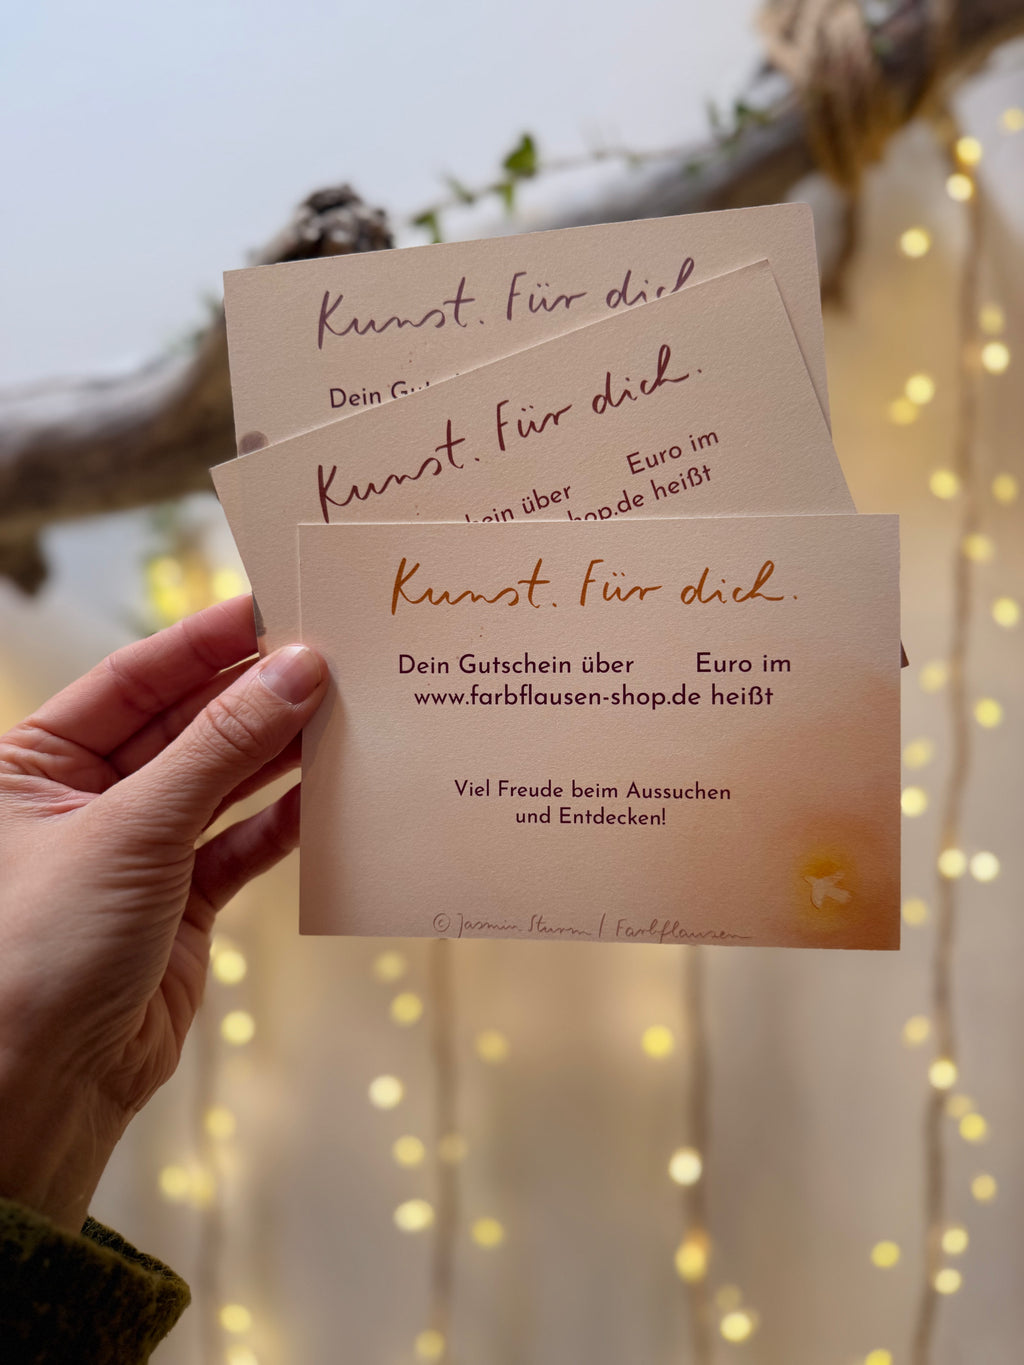 Kunst. Für dich
Dein
Kunst. Für dich.
über Euro im
heißt
Kunst. Für dich.
Dein Gutschein über Euro im
www.farbflausen-shop.de heißt
Viel Freude beim Aussuchen
und Entdecken!
© Jasmin Sturm | Farbflausen